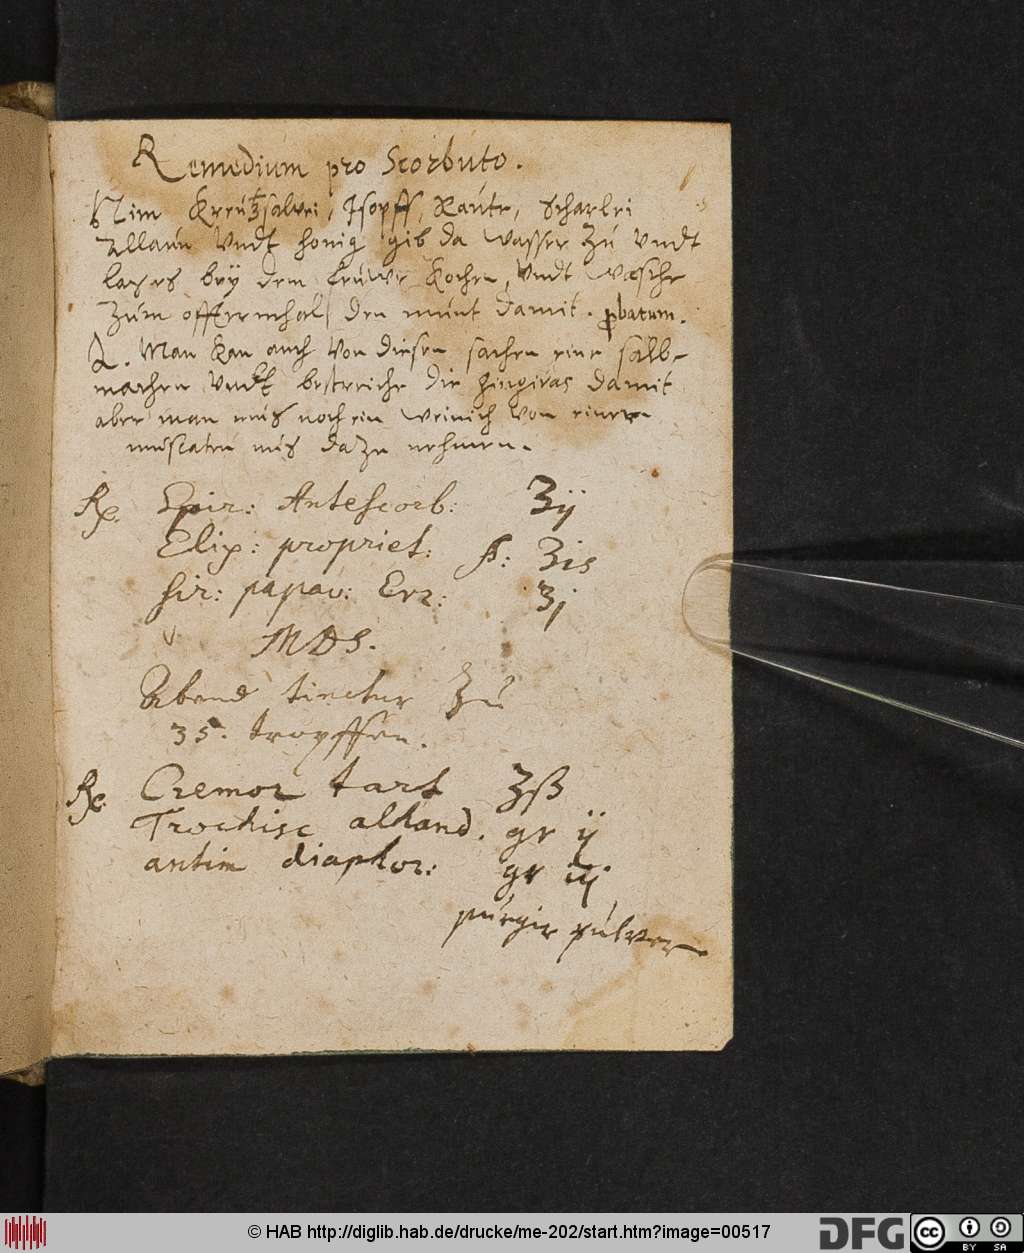 Remedium pro Scorbuto.
Nim Kreützsalvei, Isopff, Raute, Scharlei
Allaun Vndt honig gib da wasser zu Vndt
lases beÿ dem Kochen, Vndt wasche
Zum offtermhal den munt damit. probatum.
2. Man Kan auch Von diesen sachen eine salbe
machen Vndt bestreiche die gingivas damit
aber man mus noch ein weinich Von einer
muscaten nus dazu nehmen.
Rx. Spir: Antescorb: ʒij
Elix: propriet: ß: ʒis
Sir: papav: Err: ʒj
MDS.
Abend tinctur Zu
35. tropffen.
Rx. Cremor tart ʒß
Trochisc alhand. gr ij
antim diaphor: gr iij
purgir pulver
© HAB http://diglib.hab.de/drucke/me-202/start.htm?image=00517
DFG
cc
BY SA